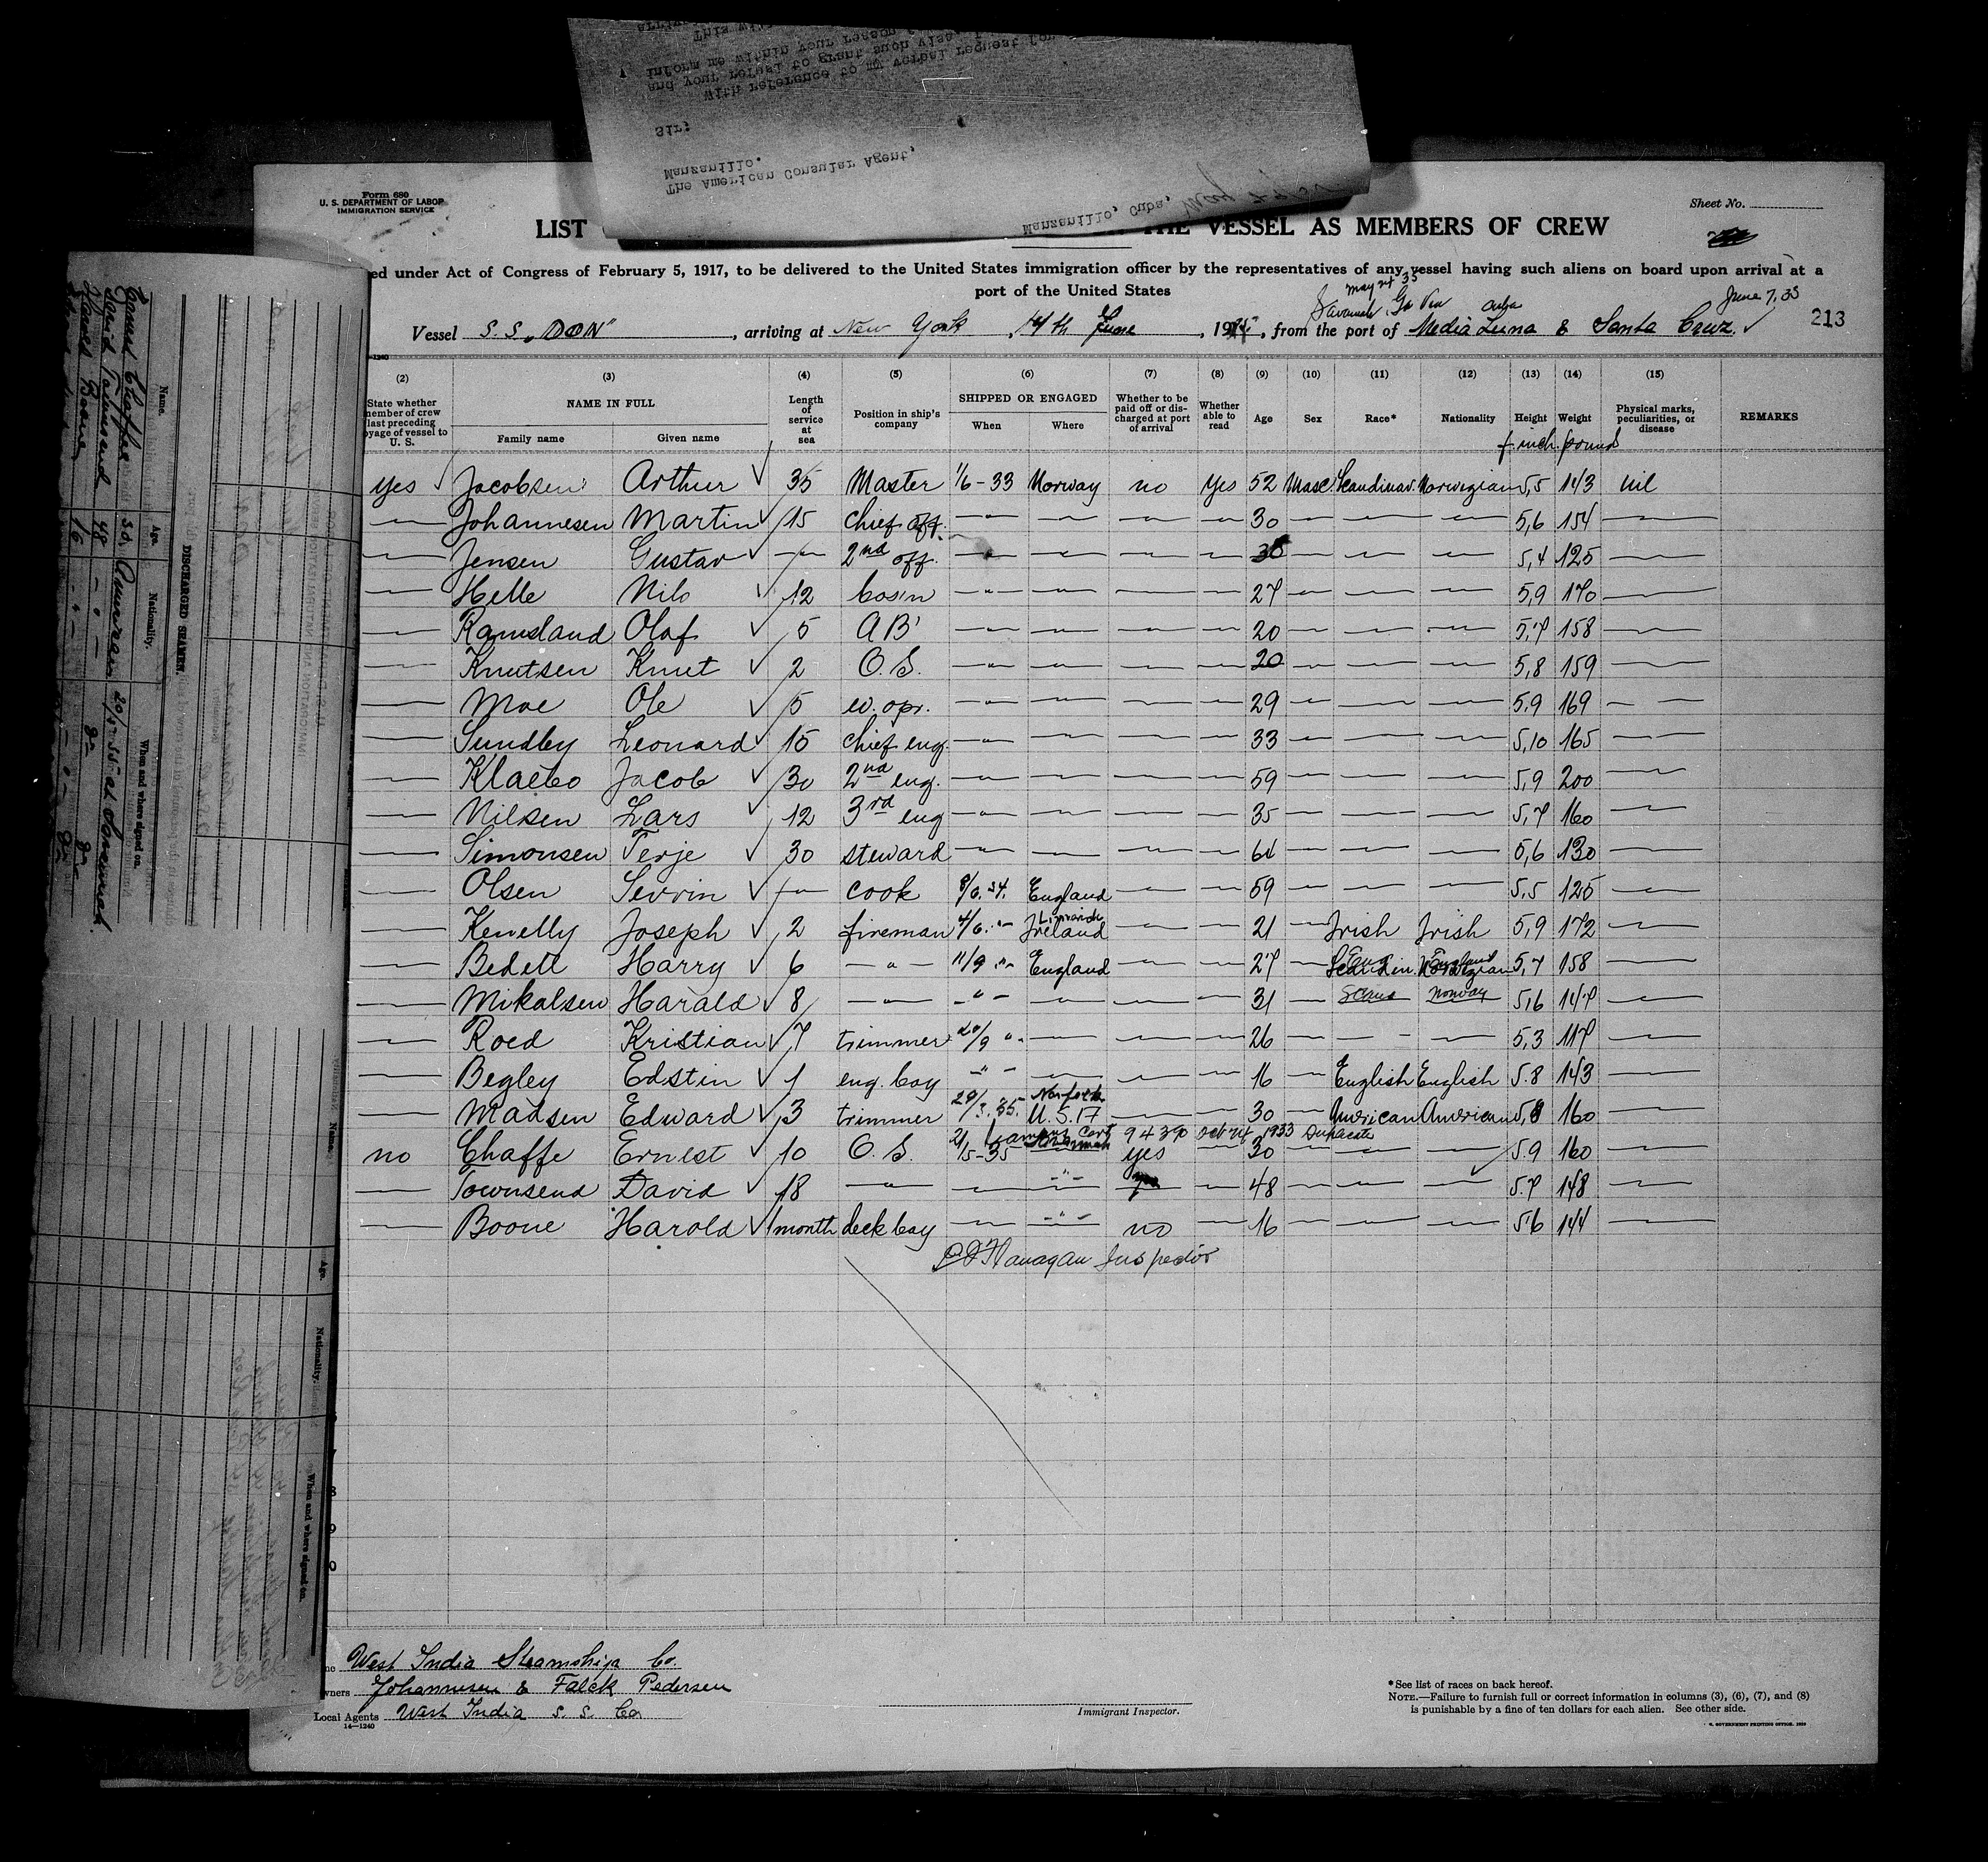 With reference to my verbal request for
and your refusal to grant such visa,
inform me within your reason
This
Sir;
The American Consular Agent,
Manzanillo.
Manzanillo, Cuba, May
Form 680
U. S. DEPARTMENT OF LABOR
IMMIGRATION SERVICE
Sheet No.
LIST THE VESSEL AS MEMBERS OF CREW
ed under Act of Congress of February 5, 1917, to be delivered to the United States immigration officer by the representatives of any vessel having such aliens on board upon arrival at a
port of the United States
May 24 35
Savannah, Ga Via Cuba June 7, 35
Vessel S.S. "DON", arriving at New York, 14th June, 19, from the port of Media Luna & Santa Cruz. 213
(2) (3) (4) (5) (6) (7) (8) (9) (10) (11) (12) (13) (14) (15)
State whether member of crew last preceding voyage of vessel to U. S.
NAME IN FULL
Family name Given name
Length of service at sea
Position in ship's company
SHIPPED OR ENGAGED
When Where
Whether to be paid off or discharged at port of arrival
Whether able to read
Age Sex Race* Nationality Height Weight
Physical marks, peculiarities, or disease
REMARKS
f. inch. pound
yes Jacobsen Arthur 35 Master 1/6-33 Norway no Yes 52 Masc. Scandinav. Norwegian 5,5 143 nil
— Johannesen Martin 15 chief off. —"— — — — 30 — — — 5,6 154 —
— Jensen Gustav —"— 2nd off. —"— — — — — — — 5,4 125 —
— Helle Nils 12 bosn —"— — — — 27 — — — 5,9 170 —
— Ramsland Olaf 5 AB —"— — — — 20 — — — 5,7 158 —
— Knutsen Knut 2 O.S. —"— — — — 20 — — — 5,8 159 —
— Moe Ole 5 w. opr. —"— — — — 29 — — — 5,9 169 —
— Sundby Leonard 15 chief eng. —"— — — — 33 — — — 5,10 165 —
— Klaebo Jacob 30 2nd eng. —"— — — — 59 — — — 5,9 200 —
— Nilsen Lars 12 3rd eng —"— — — — 35 — — — 5,7 160 —
— Simonsen Terje 30 steward —"— — — — 64 — — — 5,6 130 —
— Olsen Sevrin —"— cook 8/6.34. England — — 59 — — — 5,5 125 —
— Kenelly Joseph 2 fireman 4/6."- Ireland — — 21 — Irish Irish 5,9 172 —
— Bedell Harry 6 —"— 11/9 "- England — — 27 5,7 158 —
— Mikalsen Harald 8 —"— —"— — — — 31 — Scand Norway 5,6 147 —
— Roed Kristian 7 trimmer 20/9 "- — — — 26 — — — 5,3 117 —
— Begley Edstin 1 eng. boy —"— — — — 16 — English English 5.8 143 —
— Madsen Edward 3 trimmer 29/3.35. Norfolk U.S.A — — 30 — American American 5,8 160 —
Cert 9430 Oct 24 1933 Duplicate
no Chaffe Ernest 10 O.S. 21/5-35 yes — 30 — — — 5.9 160 —
— Townsend David 18 —"— — —"— — 48 — — — 5.7 148 —
— Boone Harold 1 month deck boy — —"— no — 16 — — — 5,6 144 —
Flanagan Inspector
West India Steamship Co.
wners Johannesen & Falck Pedersen
Local Agents West India S. S. Co.
14—1240
Immigrant Inspector.
*See list of races on back hereof.
NOTE.—Failure to furnish full or correct information in columns (3), (6), (7), and (8)
is punishable by a fine of ten dollars for each alien. See other side.
DISCHARGED SEAMEN.
Name. Age. Nationality. When and where signed on.
Ernest Chaffe 30 American 20/5-35 at Savannah.
David Townsend 48 — " — do
Boone 16 — " — do
Name. Age. Nationality. When and where signed on.